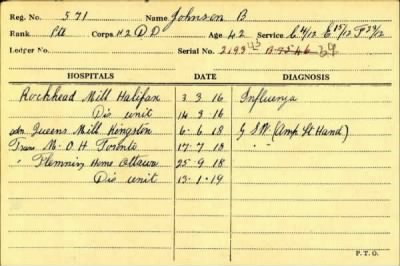 Reg. No. 571 Name Johnson B
Rank Pte Corps #2 D.D. Age 42 Service C 4/12 E 15/12 F 29/12
Ledger No. Serial No. 2193 43
HOSPITALS DATE DIAGNOSIS
Rockhead Mill Halifax 3 3 16 Influenza
Dis unit 14 3 16
adm Queens Mill Kingston 6.6 18 G.S.W. (Amp Lt Hand)
Trans M.O.H Toronto 17.7 18 " "
" Flemming Home Ottawa 25.9 18
Dis unit 13.1.19
P.T.O.